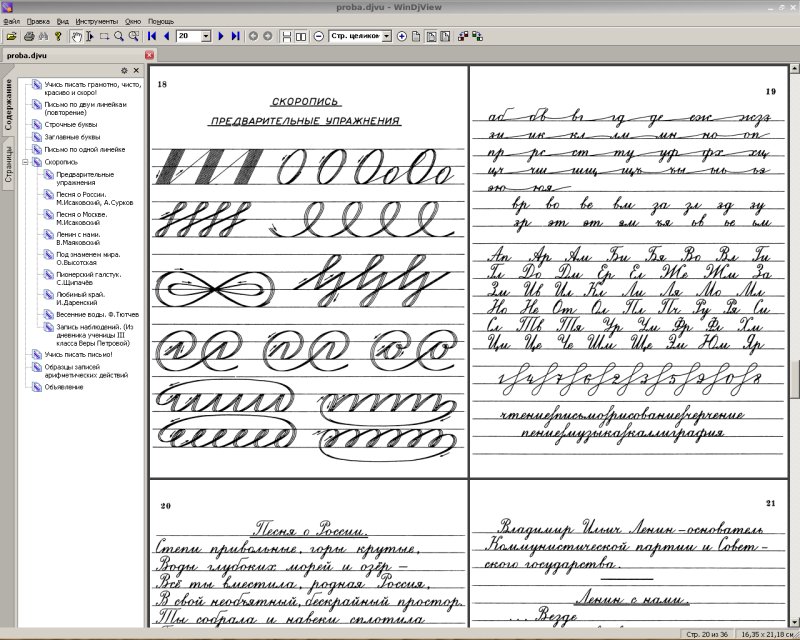 proba.djvu - WinDjView
Файл Правка Вид Инструменты Окно Помощь
20
Стр. целиком
proba.djvu
Содержание
Страницы
Учись писать грамотно, чисто,
красиво и скоро!
Письмо по двум линейкам
(повторение)
Строчные буквы
Заглавные буквы
Письмо по одной линейке
Скоропись
Предварительные
упражнения
Песня о России.
М.Исаковский, А.Сурков
Песня о Москве.
М.Исаковский
Ленин с нами.
В.Маяковский
Под знаменем мира.
О.Высотская
Пионерский галстук.
С.Щипачёв
Любимый край.
И.Даренский
Весенние воды. Ф.Тютчев
Запись наблюдений. (Из
дневника ученицы III
класса Веры Петровой)
Учись писать письмо!
Образцы записей
арифметических действий
Объявление
18
СКОРОПИСЬ
ПРЕДВАРИТЕЛЬНЫЕ УПРАЖНЕНИЯ
19
аб бв вг гд де еж жзз
зи ик кл лм мн но оп
пр рс ст ту уф фх хц
цч чш шщ щъ ъы ыь ьэ
эю юя
вр во ве вм за зл зд зу
зр эт от ям чя ьв ье ьм
Ап Ар Ам Би Бя Во Вл Ги
Гл До Дм Ер Ел Же Жм За
Зм Ив Ил Кл Ли Ля Мо Мл
Но Не От Ол Пл Пч Ру Ря Си
Сл Тв Тя Ур Ум Фр Фл Хм
Ци Це Че Шл Ще Эл Юм Яр
1 4 7 6 2 3 5 9 0 8
чтение письмо рисование черчение
пение музыка каллиграфия
20
Песня о России.
Степи привольные, горы крутые,
Воды глубоких морей и озёр –
Всё ты вместила, родная Россия,
В свой необъятный, бескрайный простор.
Ты собрала и навеки сплотила
21
Владимир Ильич Ленин – основатель
Коммунистической партии и Совет-
ского государства.
Ленин с нами.
... Везде
Стр. 20 из 36
16,35 x 21,18 см.